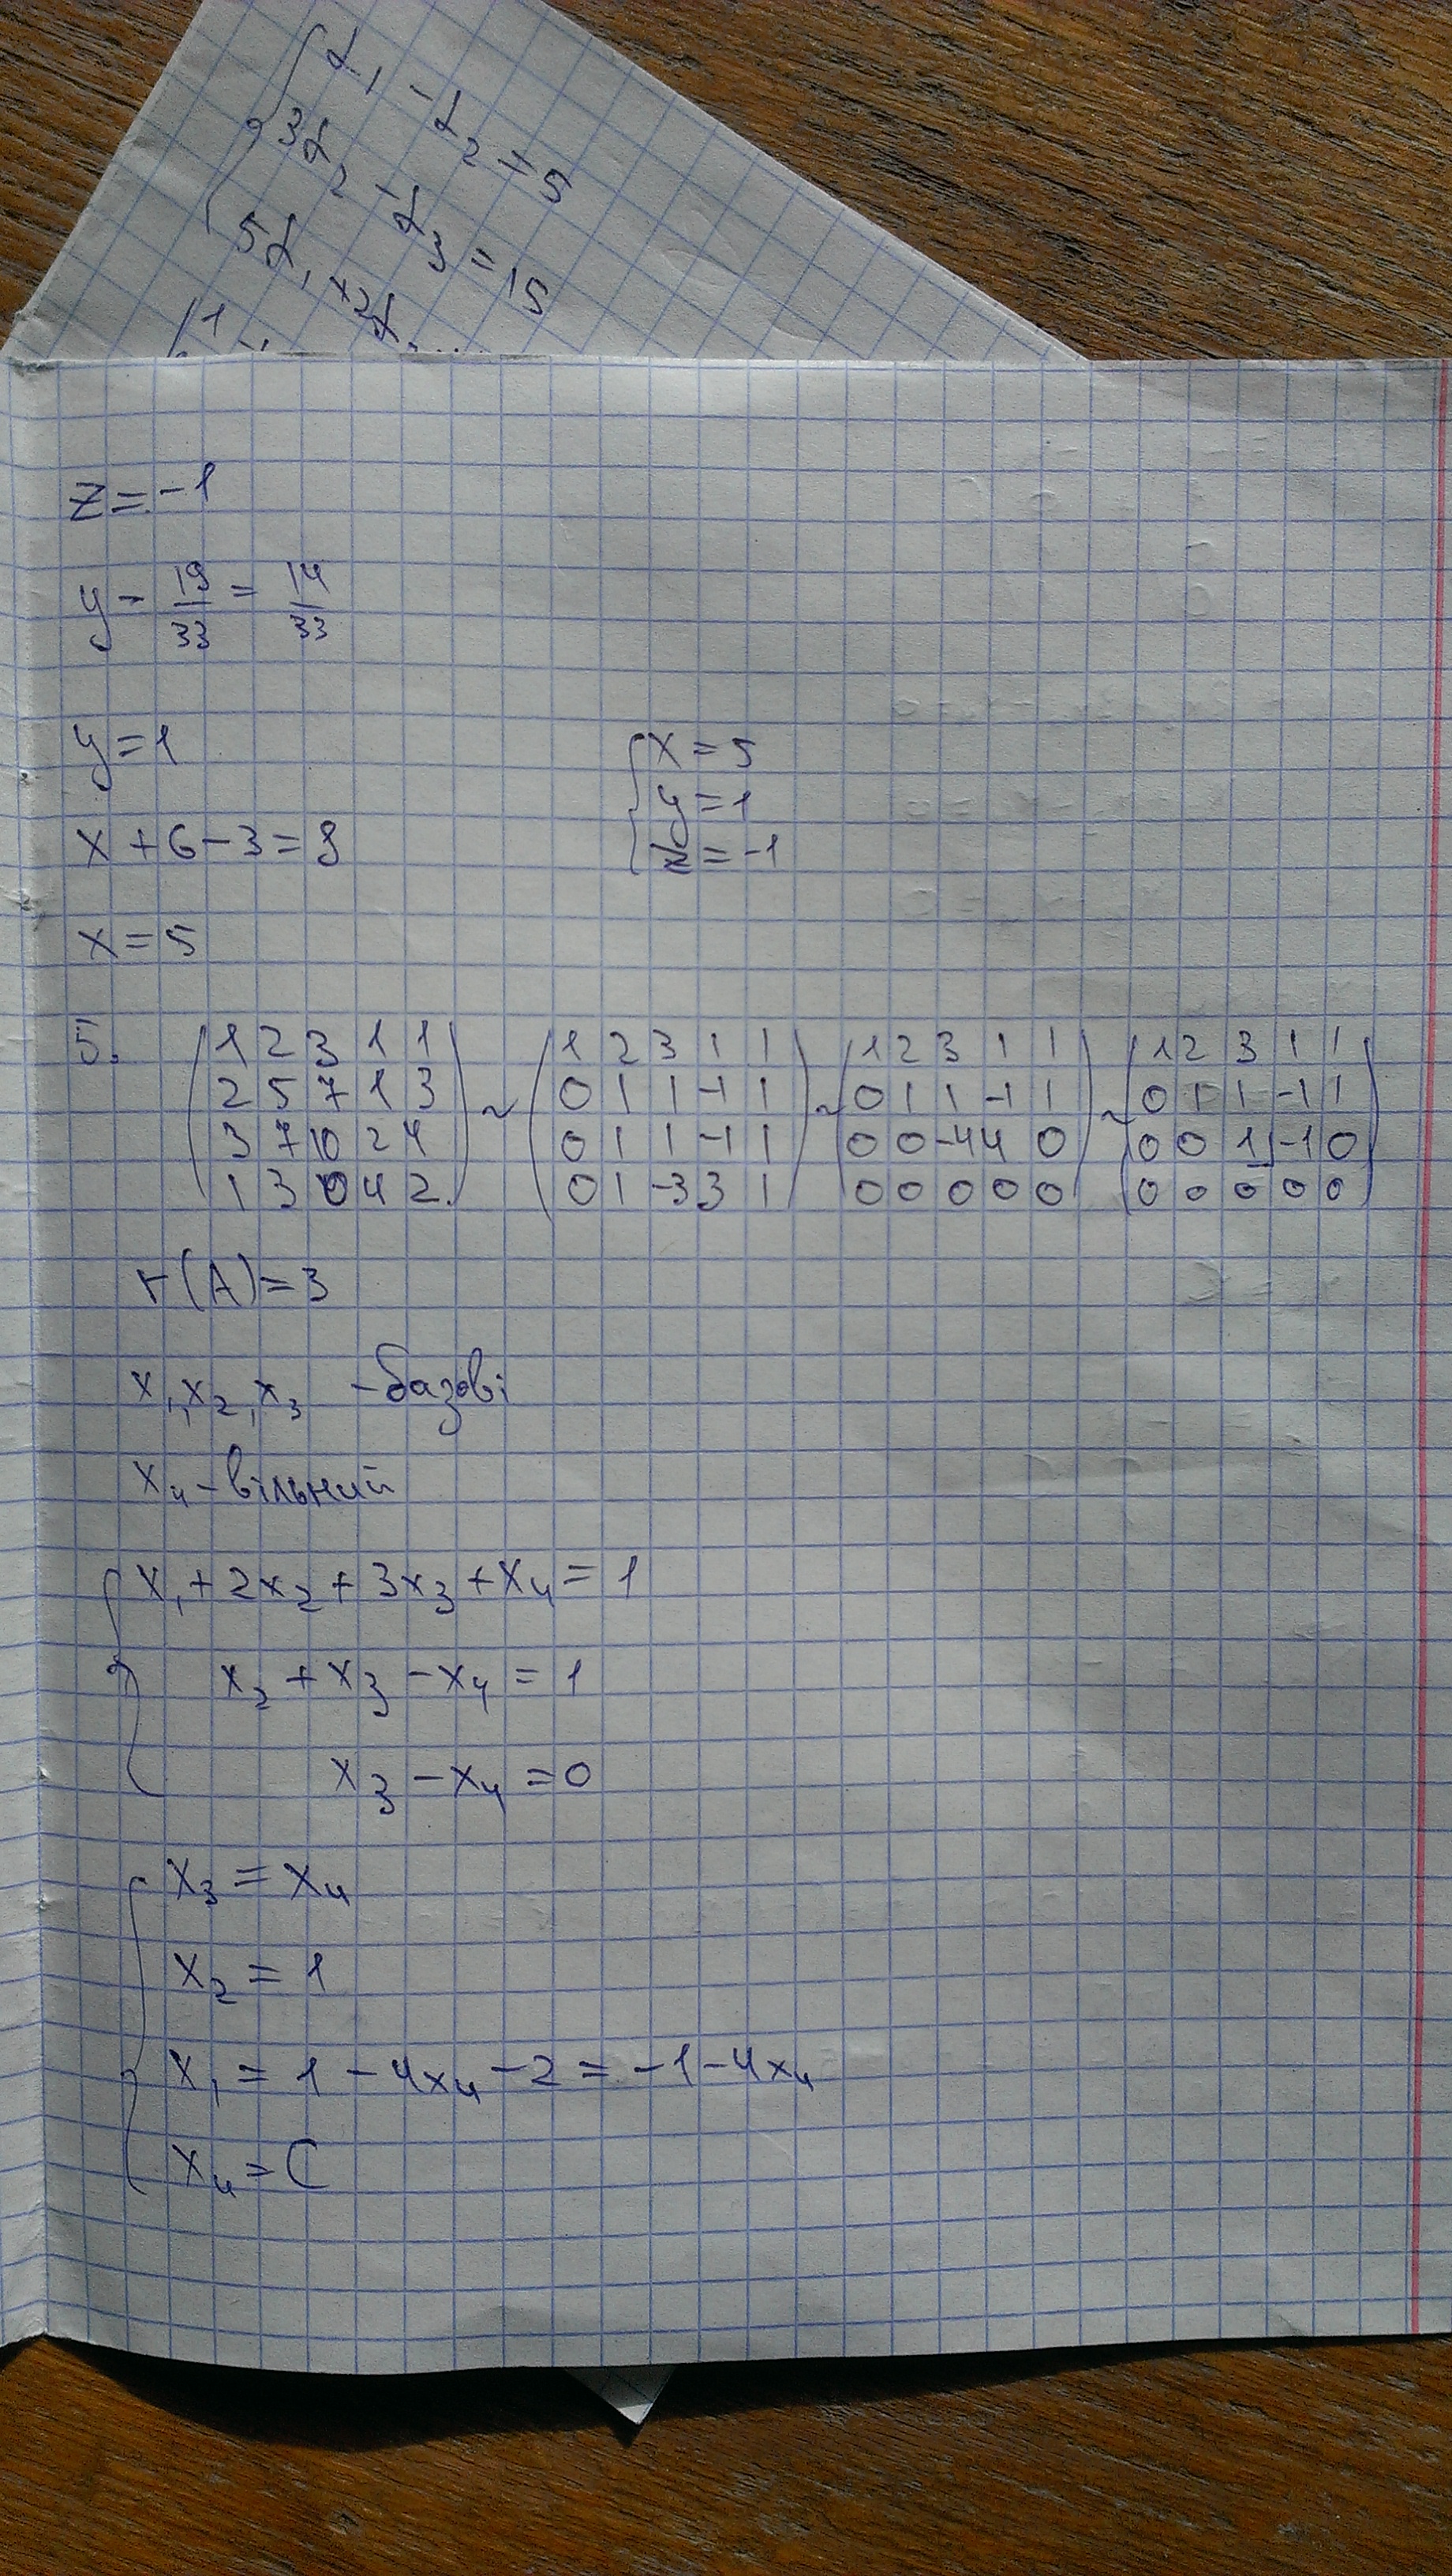 α₁ - α₂ = 5
3α₂ - α₃ = 15
5α₁ + 2α
1 -1
z = -1
y - 19/33 = 14/33
y = 1
x + 6 - 3 = 8
x = 5
x = 5
y = 1
z = -1
5. (1 2 3 1 1) (1 2 3 1 1) (1 2 3 1 1) (1 2 3 1 1)
(2 5 7 1 3) ~ (0 1 1 -1 1) ~ (0 1 1 -1 1) ~ (0 1 1 -1 1)
(3 7 10 2 4) (0 1 1 -1 1) (0 0 -4 4 0) (0 0 1 -1 0)
(1 3 0 4 2) (0 1 -3 3 1) (0 0 0 0 0) (0 0 0 0 0)
r(A) = 3
x₁, x₂, x₃ - базові
x₄ - вільний
x₁ + 2x₂ + 3x₃ + x₄ = 1
x₂ + x₃ - x₄ = 1
x₃ - x₄ = 0
x₃ = x₄
x₂ = 1
x₁ = 1 - 4x₄ - 2 = -1 - 4x₄
x₄ = C